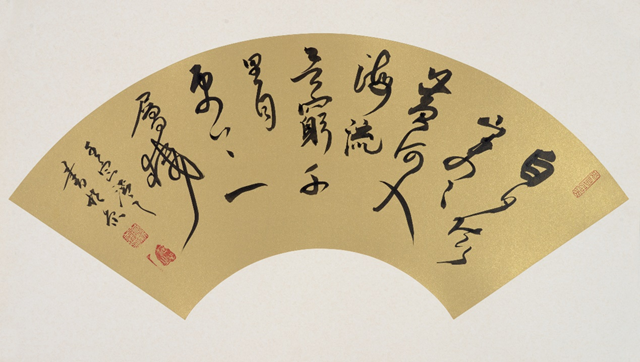 白日
依山盡
黃河入
海流
欲窮千
里目
更上一
層樓